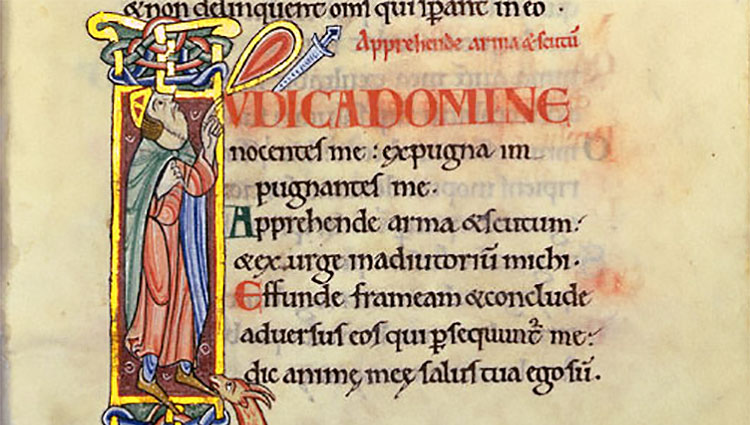 & non delinquent om̄s qui sꝑant in eo .
Apprehende arma & scutū
IUDICA DOMINE
nocentes me : expugna im
pugnantes me .
Apprehende arma & scutum :
& ex.urge in adiutoriū michi .
Effunde frameam & conclude
adversus eos qui ꝑsequunt᷑ me :
dic animę meę salus tua ego sū .